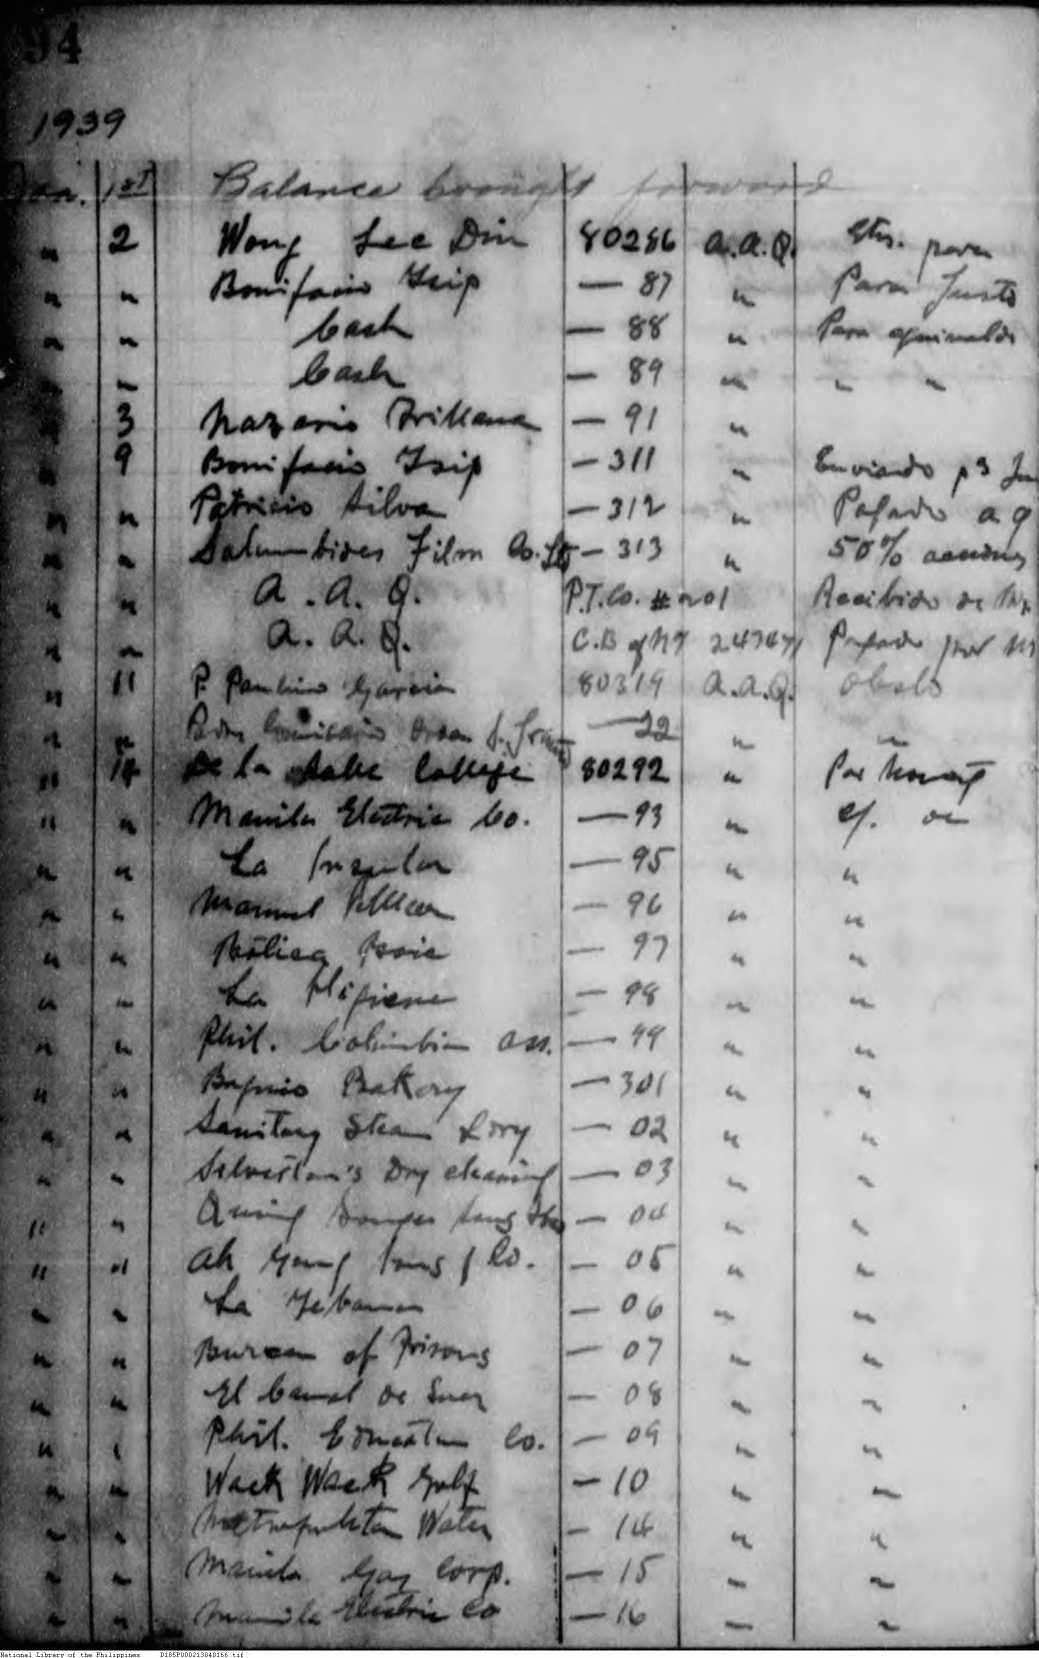 94
1939
Jan. 1st Balance brought forward
" 2 Wong See Din 80286 A.A.Q. Gtos. para
" " Bonifacio Isip — 87 " Para Justo
" " Cash — 88 " Para aguinaldos
" " Cash — 89 " " "
" 3 Nazario — 91 "
" 9 Bonifacio Isip — 311 " Enviando
" " Patricio Silva — 312 " Pagado a
" " Film Co. — 313 " 50% acciones
" " A. A. Q. P.T.Co. # 201 Recibido de
" " A. A. Q. C.B of NY 24747 Pagado por
" 11 P. Paulino Garcia 80319 A.A.Q.
" " — 22 " "
" 14 De la Salle College 80292 " Por
" " Manila Electric Co. — 93 " c/. de
" " La Insular — 95 " "
" " Manuel — 96 " "
" " Botica Boie — 97 " "
" " La Higiene — 98 " "
" " Phil. Columbian Ass. — 99 " "
" " Baguio Bakery — 301 " "
" " Sanitary Steam Ldry — 02 " "
" " Dry cleaning — 03 " "
" " — 04 " "
" " Ah Gong Sons & Co. — 05 " "
" " La — 06 " "
" " Bureau of Prisons — 07 " "
" " El Canal de Suez — 08 " "
" " Phil. Education Co. — 09 " "
" " Wack Wack Golf — 10 " "
" " Metropolitan Water — 14 " "
" " Manila Gas Corp. — 15 " "
" " Manila Electric Co — 16 " "
National Library of the Philippines D185P000213840166.tif